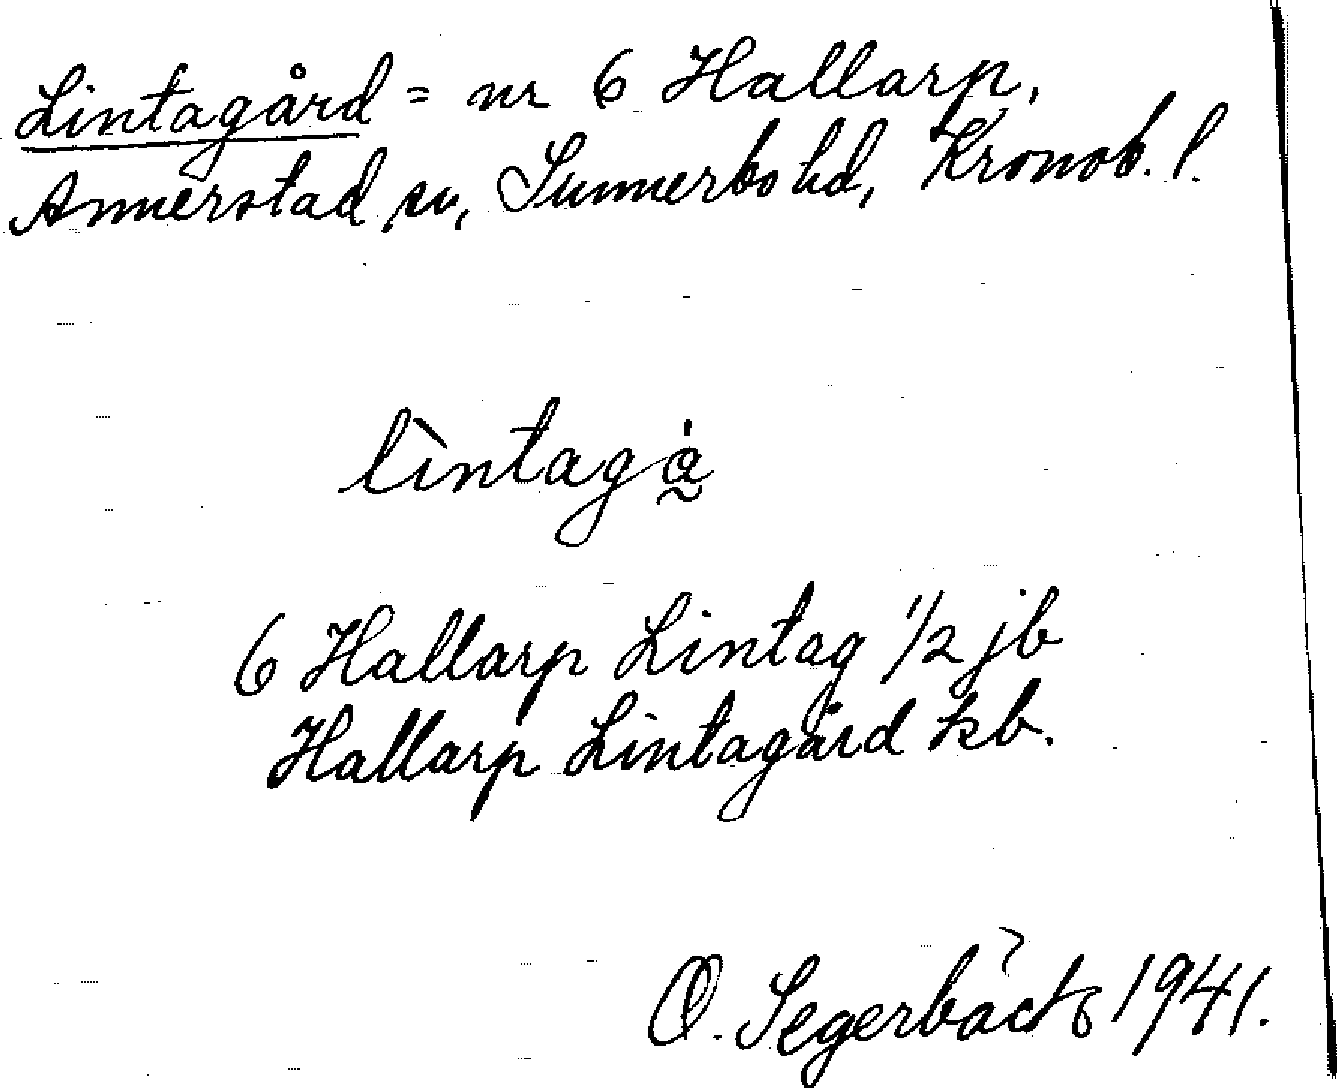 Lintagård = nr 6 Hallarp,
Annerstad sn, Sunnerbo hd, Kronob. l.
lìntagå̰
6 Hallarp Lintag 1/2 jb
Hallarp Lintagård kb.
O. Segerbäck 1941.